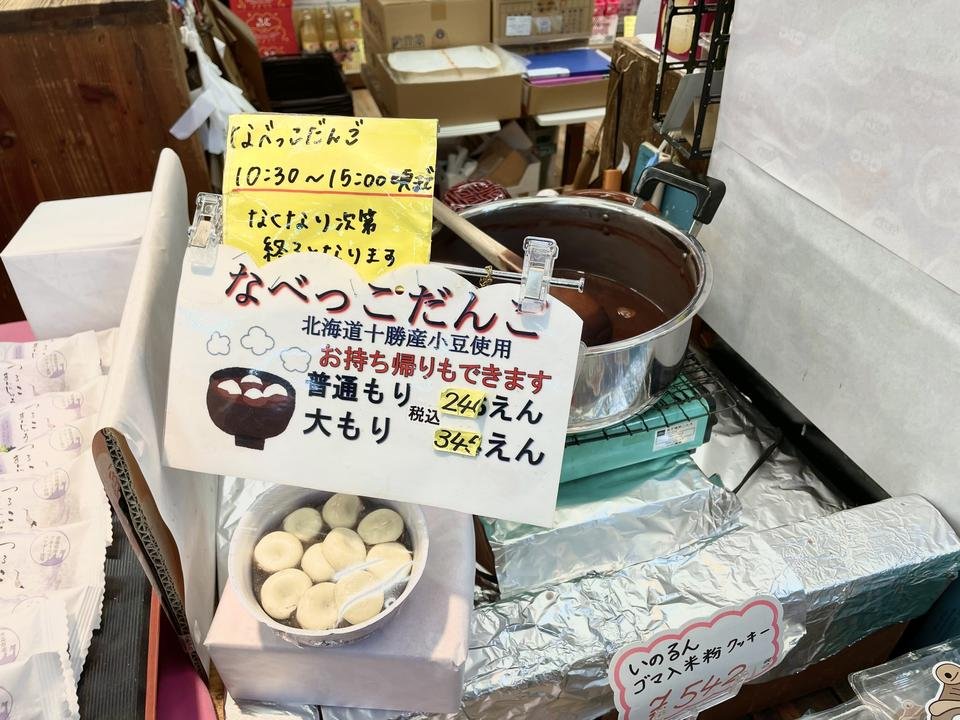 なべっこだんご
10:30～15:00頃まで
なくなり次第
終了となります
なべっこだんご
北海道十勝産小豆使用
お持ち帰りもできます
普通もり 税込 246えん
大もり えん
いのるん
ゴマ入米粉クッキー
542